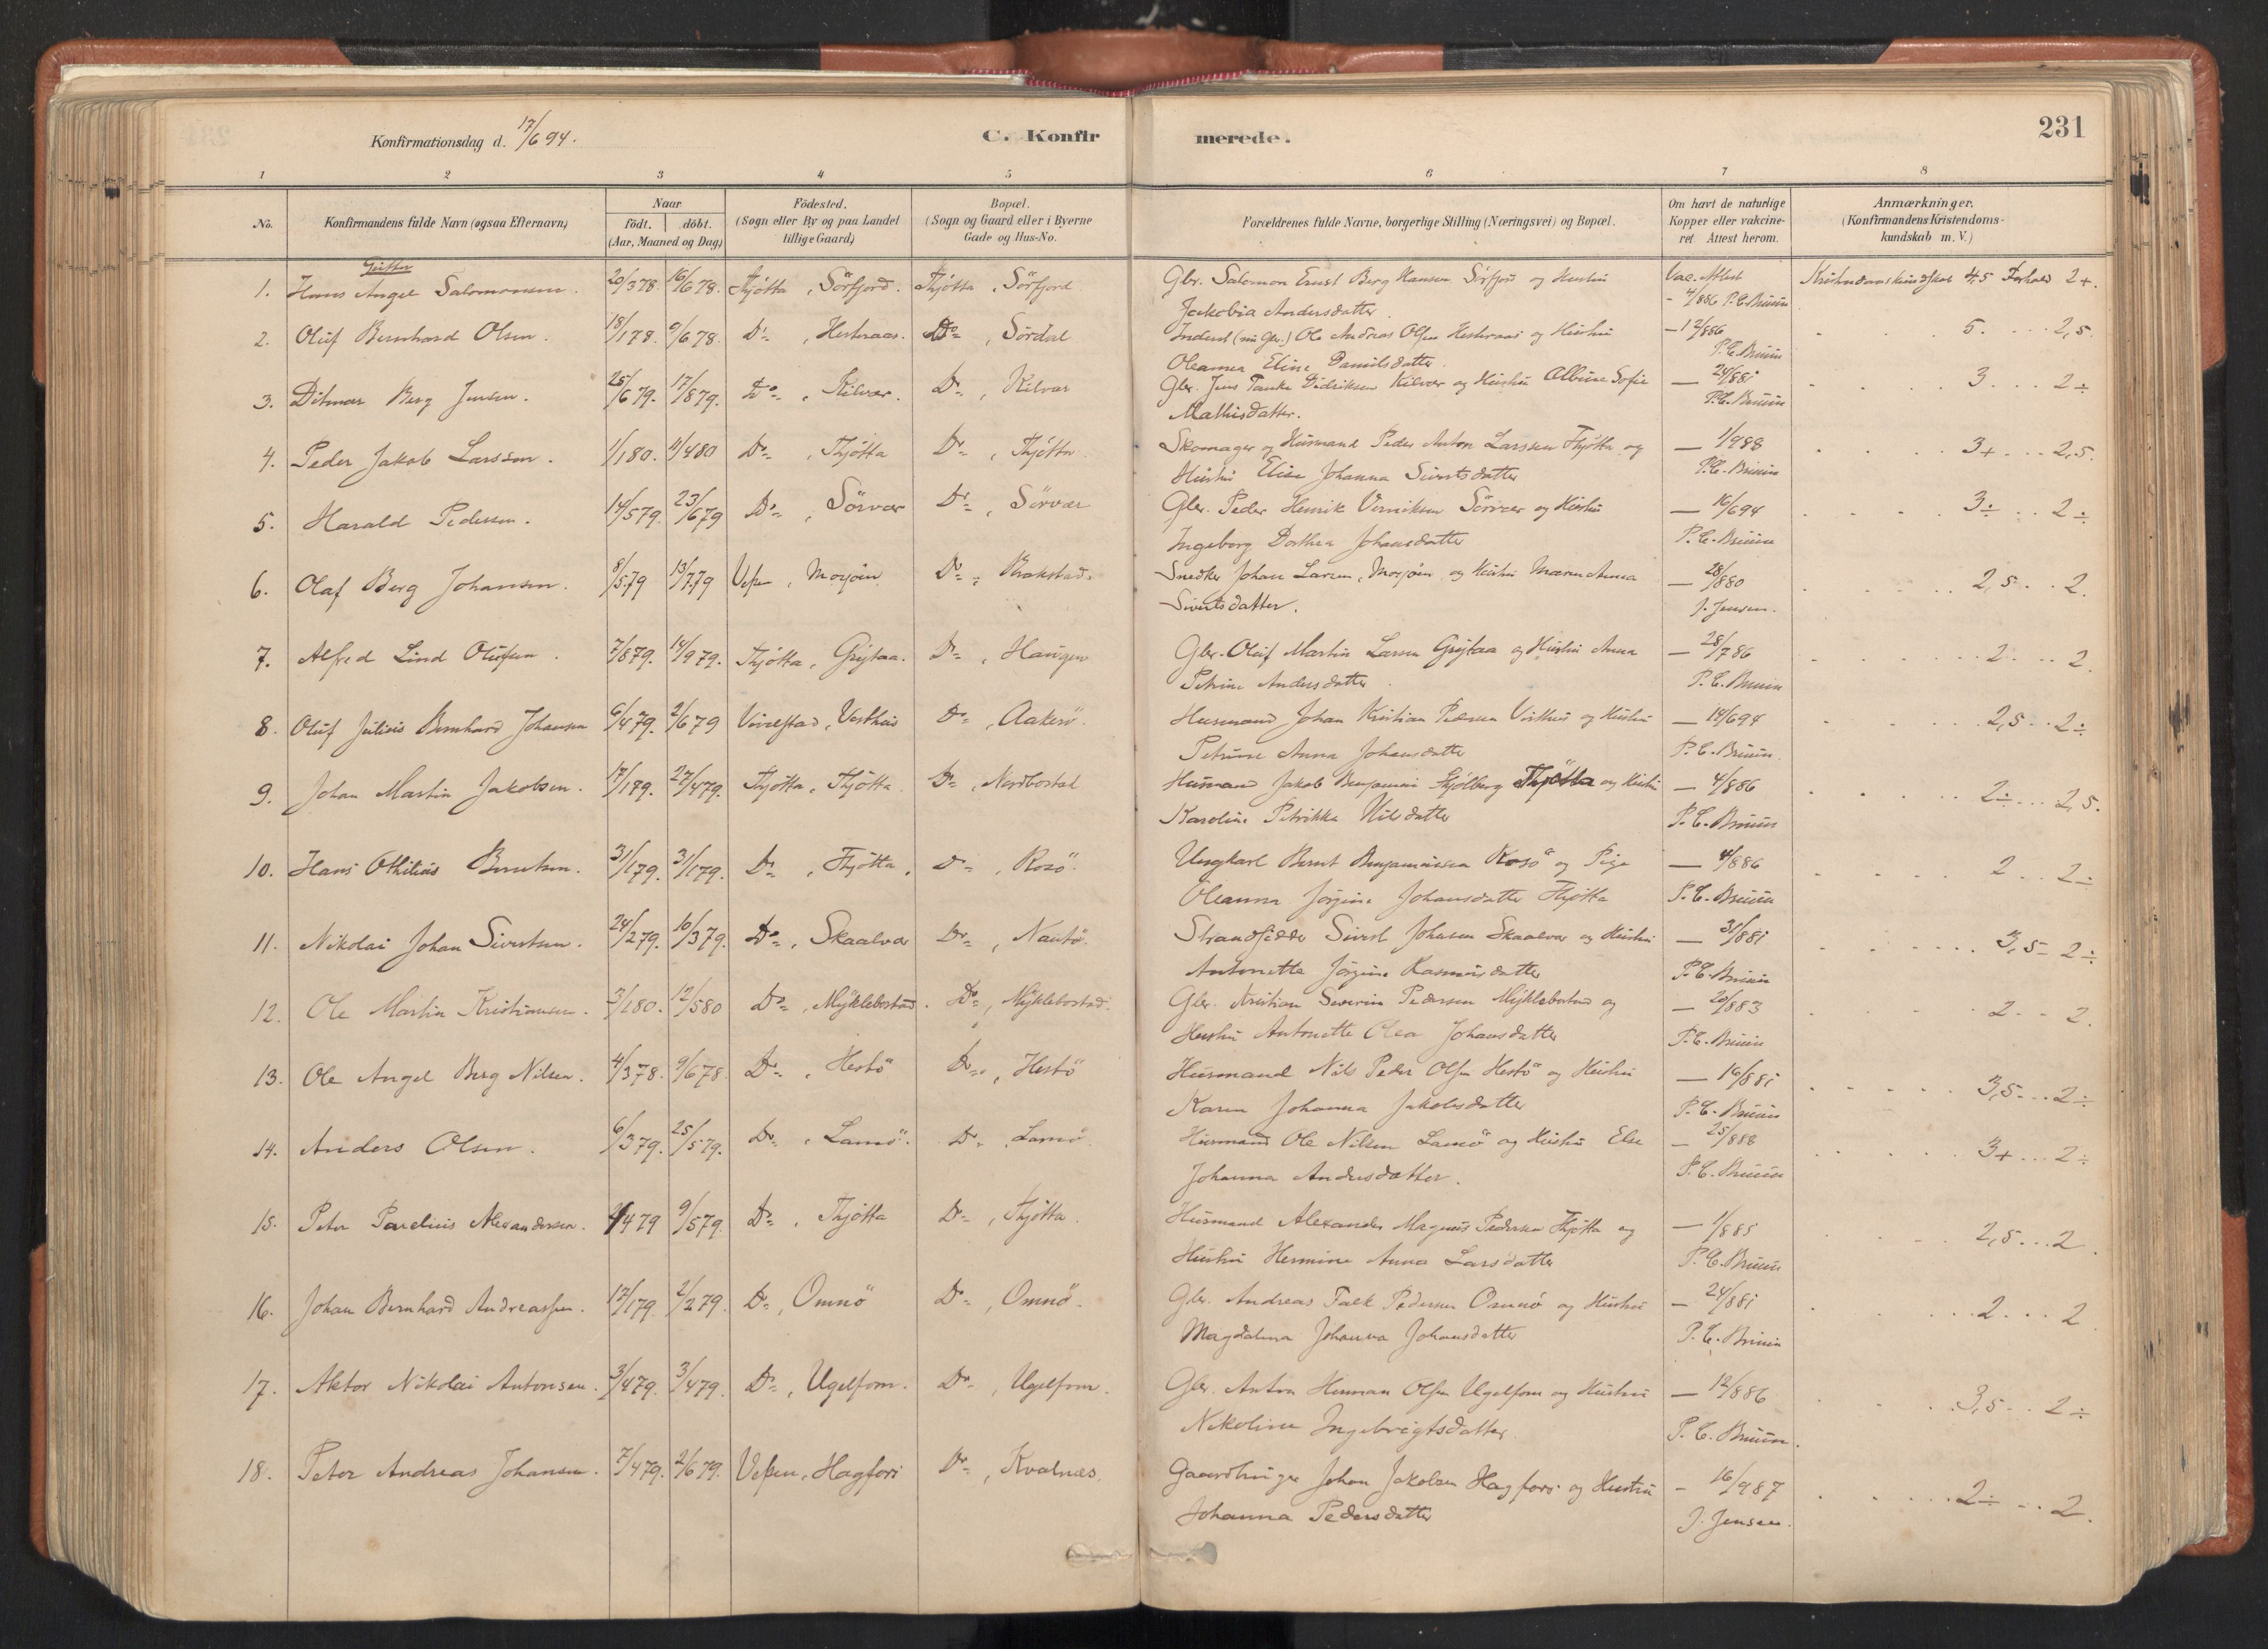 Konfirmationsdag d. 17/6 94.
C. Konfir merede. 231
1 2 3 4 5 6 7 8
No. Konfirmandens fulde Navn (ogsaa Efternavn) Naar födt. döbt. (Aar, Maaned og Dag) Födested. (Sogn eller By og paa Landet tillige Gaard) Bopæl. (Sogn og Gaard eller i Byerne Gade og Hus-No. Forældrenes fulde Navne, borgerlige Stilling (Næringsvei) og Bopæl. Om havt de naturlige Kopper eller vakcineret. Attest herom. Anmærkninger. (Konfirmandens Kristendomskundskab m. V.)
1. Hans Angel Salomonsen. 20/3 78. 16/6 78. Thjötta, Sörfjord. Thjötta, Sörfjord Gbr. Salomon Ernst Berg Hansen Sörfjord og Hustru Vac. Attest Kristendomskundskab 4,5 Forhold 2+.
Jakobia Andersdatter - 4/8 86 P.C. Bruun
2. Oluf Bernhard Olsen. 18/1 78. 9/6 78. Do, Hestnaas. Do, Sördal Inderst (nu Gbr.) Ole Andreas Olsen Hestnaas og Hustru - 12/8 86 5. 2,5.
Oleanna Eline Danielsdatter P.C. Bruun
3. Ditmar Berg Jensen. 25/6 79. 17/8 79. Do, Kilvær. Do, Kilvær Gbr. Jens Tanke Didriksen Kilvær og Hustru Albine Sofie - 24/8 81 3 ... 2÷
Mathisdatter. P.C. Bruun
4. Peder Jakob Larssen. 1/1 80. 11/4 80 Do, Thjötta Do, Thjötta Skomager og Husmand Peder Anton Larssen Thjötta og - 1/9 88 3+ ... 2,5.
Hustru Elise Johanna Sivertsdatter P.C. Bruun
5. Harald Pedersen. 14/5 79. 23/6 79 Do, Sörvær Do, Sörvær Gbr. Peder Henrik Verniksen Sörvær og Hustru - 16/6 94 3÷ .. 2÷
Ingeborg Dorthea Johansdatter P.C. Bruun
6. Olaf Berg Johansen. 8/5 79 13/7 79 Vefsn, Mosjöen Do, Brakstad. Snedker Johan Larsen, Mosjöen, og Hustru Maren Anna - 28/8 80 2,5 .. 2.
Sivertsdatter. J. Jensen.
7. Alfred Lind Olufsen. 7/8 79. 14/9 79. Thjötta, Grytaa. Do, Haugen Gbr. Oluf Martin Larsen Grytaa og Hustru Anna - 28/7 86 2 .. 2.
Petrine Andersdatter. P.C. Bruun
8. Oluf Julius Bernhard Johansen 6/4 79. 2/6 79 Vivelstad, Vesthus Do, Aakerö. Husmand Johan Kristian Pedersen Vesthus og Hustru - 14/6 94 2,5 .. 2÷
Petrine Anna Johansdatter P.C. Bruun.
9. Johan Martin Jakobsen. 17/1 79. 27/4 79. Thjötta, Thjötta. Do, Nordbostad Husmand Jakob Benjamin Thjötta og Hustru - 4/8 86 2÷ ... 2,5.
Karoline Petrikka Nilsdatter P.C. Bruun
10. Hans Othilius Berntsen. 31/1 79. 31/1 79. Do, Thjötta. Do, Rosö. Ungkarl Bernt Benjaminsen Rosö og Pige - 4/8 86 2 .. 2÷
Oleanna Jörgine Johansdatter Thjötta P.C. Bruun
11. Nikolai Johan Sivertsen. 24/2 79. 16/3 79. Do, Skaalvær Do, Nautö. Strandsidder Sivert Johnsen Skaalvær og Hustru - 31/8 81 3,5 - 2÷
Antonette Jörgine Rasmusdatter P.C. Bruun
12. Ole Martin Kristiansen. 3/1 80. 12/5 80 Do, Myklebostad. Do, Myklebostad. Gbr. Kristian Severin Pedersen Myklebostad og - 20/8 83 2 .. 2.
Hustru Antonette Olea Johansdatter P.C. Bruun
13. Ole Angel Berg Nilsen. 4/3 78. 9/6 78. Do, Hestö Do, Hestö Husmand Nils Peder Olsen Hestö og Hustru - 16/8 81 3,5 ... 2÷
Karen Johanna Jakobsdatter P.C. Bruun
14. Anders Olsen. 6/3 79. 25/5 79. Do, Lamö. Do, Lamö. Husmand Ole Nilsen Lamö og Hustru Else - 25/8 88 3+ ... 2÷
Johanna Andersdatter. P.C. Bruun
15. Peter Parelius Alexandersen. 4 79 9/5 79. Do, Thjötta Do, Thjötta. Husmand Alexander Magnus Pedersen Thjötta og - 1/8 85 2,5 ... 2.
Hustru Hermine Anna Larsdatter P.C. Bruun
16. Johan Bernhard Andreassen. 17/1 79. 2/2 79. Do, Omnö Do, Omnö. Gbr. Andreas Falk Pedersen Omnö og Hustru - 24/8 81 2 ... 2.
Magdalena Johanna Johansdatter P.C. Bruun
17. Aktor Nikolai Antonsen. 3/4 79. 3/4 79. Do, Ugelfom. Do, Ugelfom. Gbr. Anton Herman Olsen Ugelfom og Hustru - 12/8 86 3,5 .. 2÷
Nikoline Ingebrigtsdatter P.C. Bruun.
18. Peter Andreas Johansen. 7/4 79. 2/6 79. Vefsn, Hagfors Do, Kvalnæs. Johan Jakobsen Hagfors og Hustru - 16/9 87 2÷ ... 2.
Johanna Pedersdatter J. Jensen.